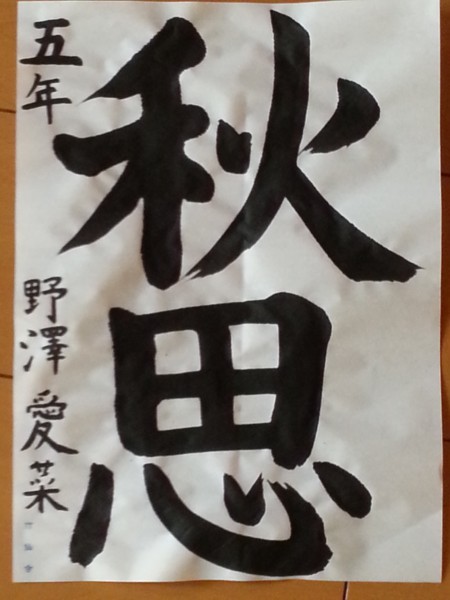 秋思
五年
野澤愛菜